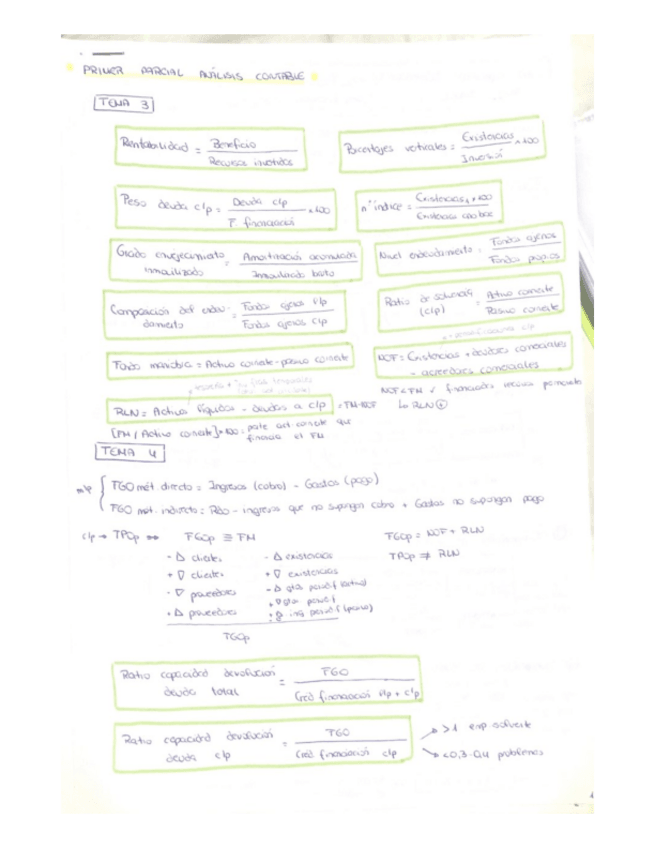 PRIMER PARCIAL ANÁLISIS CONTABLE
TEMA 3
Rentabilidad = Beneficio / Recursos invertidos
Porcentajes verticales = Existencias / Inversión × 100
Peso deuda c/p = Deuda c/p / F. financiación × 100
nº índice = Existencias × 100 / Existencias año base
Grado envejecimiento inmovilizado = Amortización acumulada / Inmovilizado bruto
Nivel endeudamiento = Fondos ajenos / Fondos propios
Composición del endeudamiento = Fondos ajenos l/p / Fondos ajenos c/p
Ratio de solvencia (c/p) = Activo corriente / Pasivo corriente
Fondo maniobra = Activo corriente - pasivo corriente
NOF = Existencias + deudores comerciales - acreedores comerciales
NOF < FM
RLN = Activos líquidos - deudas a c/p = FM-NOF
↳ RLN ⊕
[FM / Activo corriente] × 100 = parte act. corriente que financia el FM
TEMA 4
FGO mét. directo = Ingresos (cobro) - Gastos (pago)
FGO mét. indirecto = Rdo - ingresos que no supongan cobro + Gastos no supongan pago
c/p → TFOp ↔ FGOp ≡ FM
FGOp = NOF + RLN
- Δ clientes - Δ existencias
TFOp ≠ RLN
+ ∇ clientes + ∇ existencias
- ∇ proveedores
+ Δ proveedores
TGOp
Ratio capacidad devolución deuda total = FGO / Cred financiación l/p + c/p
Ratio capacidad devolución deuda c/p = FGO / Cred financiación c/p
>1 emp solvente
<0,3-0,4 problemas